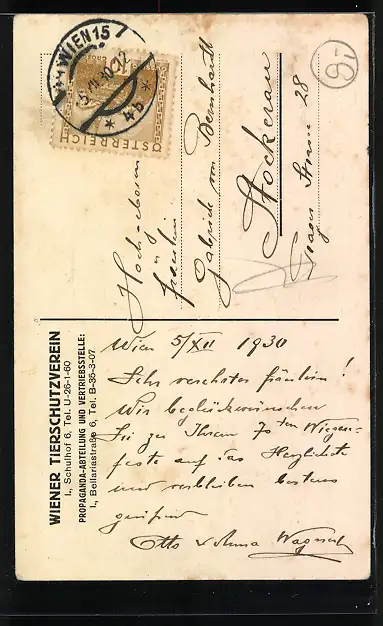 WIEN 15
ÖSTERREICH
Hochgeboren
Fräulein
Gabriele von Bernhardt
Stockerau
Prager Strasse 28
WIENER TIERSCHUTZVEREIN
I., Schulhof 6, Tel. U-26-1-60
PROPAGANDA-ABTEILUNG UND VERTRIEBSSTELLE:
I., Bellariastraße 6, Tel. B-35-3-07
Wien 5/XII 1930
Sehr verehrtes Fräulein!
Wir beglückwünschen
Sie zu Ihrem 70ten Wiegen-
feste auf das Herzlichste
und verbleiben bestens
grüßend
Otto u Anna